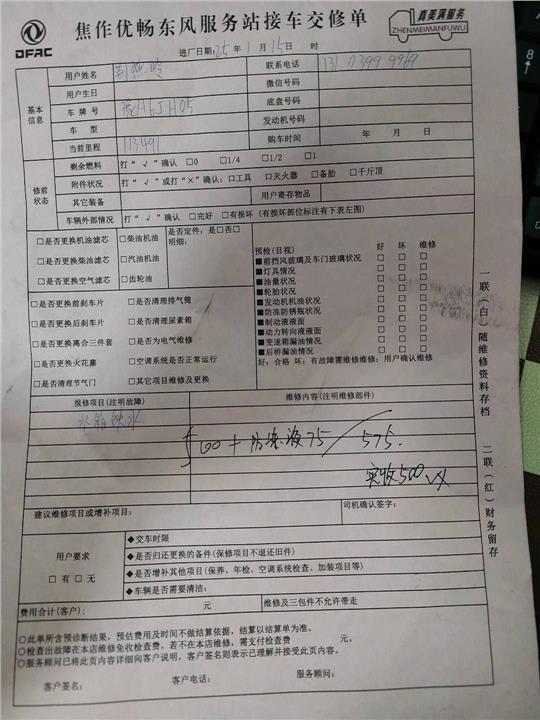 DFAC
焦作优畅东风服务站接车交修单
真美满服务
ZHENMEIMANFUWU
进厂日期: 25 年 1 月 15 日 时
基本信息
用户姓名
联系电话 131 0399 9969
用户生日
微信号码
车 牌 号 豫H6JH05
底盘号码
车 型
发动机号码
当前里程 113491
购车时间 年 月 日
修前状态
剩余燃料 打“ √ ”确认 □0 □1/4 □1/2 □1
附件状况 打“ √ ”或打“×”确认: □工具 □灭火器 □备胎 □千斤顶
其它装备 用户寄存物品
车辆外部情况 打“ √ ”确认 □完好 □有损坏 (有损坏部位标注有下表左图)
□是否更换机油滤芯 □柴油机油 是否定件: 是□否□
明细:
□是否更换柴油滤芯 □汽油机油
□是否更换空气滤芯 □齿轮油
预检(目视) 好 坏 维修
■前挡风玻璃及车门玻璃状况 □ □ □
■灯具情况 □ □ □
■油量状况 □ □ □
■轮胎状况 □ □ □
■发动机机油状况 □ □ □
■防冻防锈瓶状况 □ □ □
■制动液液面 □ □ □
■动力转向液液面 □ □ □
■变速箱漏油情况 □ □ □
■后桥漏油情况 □ □ □
好: 合格 坏: 有故障需维修维修: 用户确认维修
□是否更换前刹车片 □是否清理排气筒
□是否更换后刹车片 □是否清理尿素箱
□是否更换离合三件套 □是否为电气维修
□是否更换火花塞 □空调系统是否正常运行
□是否清理节气门 □其它项目维修及更换
报修项目(注明故障) 维修内容(注明维修部件)
水箱缺水
500 + 防冻液75 / 575.
实收500
建议维修项目或增补项目:
司机确认签字:
用户要求
□ 有 □ 无
◆交车时限
◆是否归还更换的备件(保修项目不退还旧件)
◆是否增补其他项目(保养、年检、空调系统检查、加装项目等)
◆车辆是否需要清洁:
费用合计(客户): 元 维修及三包件不允许带走
○此单所含预诊断结果, 预估费用及时间不做结算依据, 结算以结算单为准。
○检查出故障在本店维修免收检查费, 若不在本店维修, 需支付检查费 元。
○服务顾问已将此页内容详细向客户说明, 客户签名则表示已理解并接受此页内容。
客户签名: 客户电话: 服务顾问:
一联(白)随维修资料存档
二联(红)财务留存